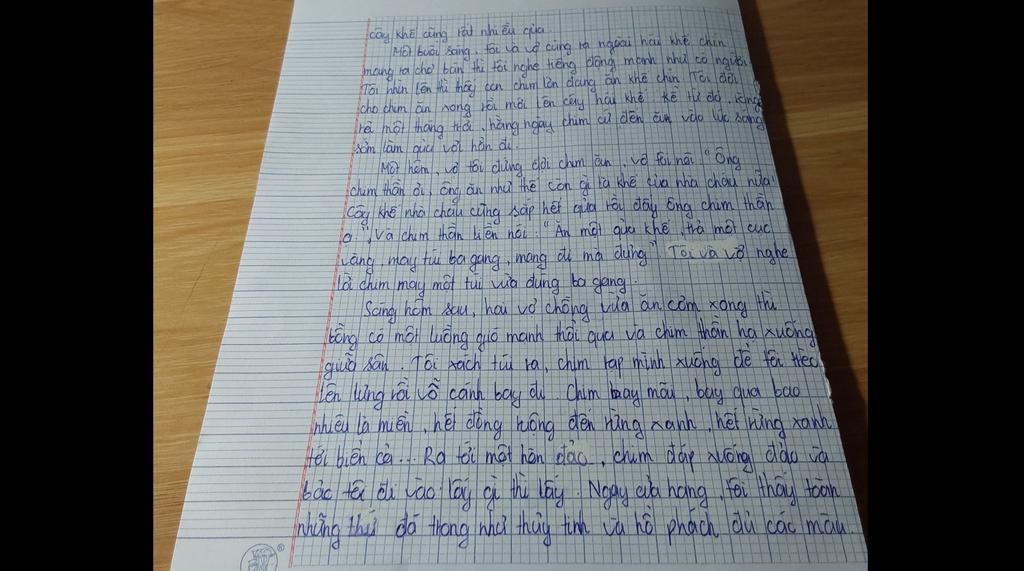 cây khế cũng rất nhiều quả.
Một buổi sáng, tôi và vợ cùng ra ngoài hái khế chín
mang ra chợ bán thì tôi nghe tiếng động mạnh như có người.
Tôi nhìn lên thì thấy con chim lớn đang ăn khế chín. Tôi đợi
cho chim ăn xong rồi mới lên cây hái khế. Kể từ đó, ròng
rã một tháng trời, hằng ngày chim cứ đến ăn vào lúc sáng
sớm làm quả vơi hẳn đi.
Một hôm, vợ tôi đứng đợi chim ăn, vợ tôi nói: "Ông
chim thần ơi, ông ăn như thế còn gì là khế của nhà cháu nữa.
Cây khế nhà cháu cũng sắp hết quả rồi đấy ông chim thần
ạ". Và chim thần liền nói: "Ăn một quả khế, trả một cục
vàng, may túi ba gang, mang đi mà đựng" Tôi và vợ nghe
là chim may một túi vừa đúng ba gang.
Sáng hôm sau, hai vợ chồng vừa ăn cơm xong thì
bỗng có một luồng gió mạnh thổi qua và chim thần hạ xuống
giữa sân. Tôi xách túi ra, chim rạp mình xuống để tôi trèo
lên lưng rồi vỗ cánh bay đi. Chim bay mãi, bay qua bao
nhiêu là miền, hết đồng ruộng đến rừng xanh, hết rừng xanh
tới biển cả... Ra tới một hòn đảo, chim đáp xuống đảo và
bảo tôi đi vào lấy gì thì lấy. Ngay cửa hang, tôi thấy toàn
những thứ đá trong như thủy tinh và hổ phách đủ các màu